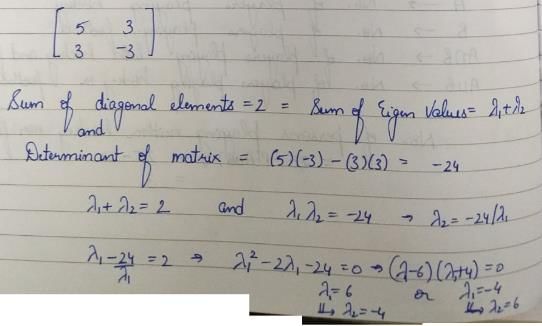 [ 5 3
3 -3 ]
Sum of diagonal elements = 2 = Sum of Eigen Values = λ₁+λ₂
and
Determinant of matrix = (5)(-3) - (3)(3) = -24
λ₁ + λ₂ = 2 and λ₁ λ₂ = -24 → λ₂ = -24/λ₁
λ₁ - 24/λ₁ = 2 → λ₁² - 2λ₁ - 24 = 0 → (λ-6)(λ₁+4) = 0
λ₁ = 6 or λ₁ = -4
↳ λ₂ = -4 ↳ λ₂ = 6